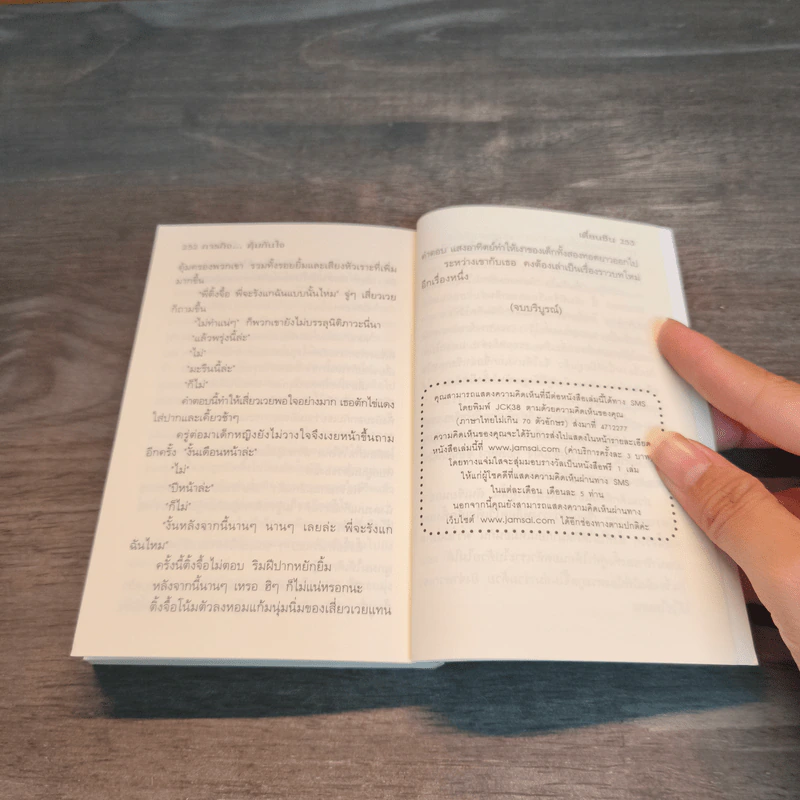 252 ภารกิจ... คุ้มกันใจ
คุ้มครองพวกเขา รวมทั้งรอยยิ้มและเสียงหัวเราะที่เพิ่ม
มากขึ้น
"พี่ติ้งจื้อ พี่จะรังแกฉันแบบนั้นไหม" จู่ๆ เสี่ยวเวย
ก็ถามขึ้น
"ไม่ทำแน่ๆ" ก็พวกเขายังไม่บรรลุนิติภาวะนี่นา
"แล้วพรุ่งนี้ล่ะ"
"ไม่"
"มะรืนนี้ล่ะ"
"ก็ไม่"
คำตอบนี้ทำให้เสี่ยวเวยพอใจอย่างมาก เธอตักไข่แดง
ใส่ปากและเคี้ยวช้าๆ
ครู่ต่อมาเด็กหญิงยังไม่วางใจจึงเงยหน้าขึ้นถาม
อีกครั้ง "งั้นเดือนหน้าล่ะ"
"ไม่"
"ปีหน้าล่ะ"
"ก็ไม่"
"งั้นหลังจากนี้นานๆ นานๆ เลยล่ะ พี่จะรังแก
ฉันไหม"
ครั้งนี้ติ้งจื้อไม่ตอบ ริมฝีปากหยักยิ้ม
หลังจากนี้นานๆ เหรอ ฮิๆ ก็ไม่แน่หรอกนะ
ติ้งจื้อโน้มตัวลงหอมแก้มนุ่มนิ่มของเสี่ยวเวยแทน
เตี่ยนซิน 253
คำตอบ แสงอาทิตย์ทำให้เงาของเด็กทั้งสองทอดยาวออกไป
ระหว่างเขากับเธอ คงต้องเล่าเป็นเรื่องราวบทใหม่
อีกเรื่องหนึ่ง
(จบบริบูรณ์)
คุณสามารถแสดงความคิดเห็นที่มีต่อหนังสือเล่มนี้ได้ทาง SMS
โดยพิมพ์ JCK38 ตามด้วยความคิดเห็นของคุณ
(ภาษาไทยไม่เกิน 70 ตัวอักษร) ส่งมาที่ 4712277
ความคิดเห็นของคุณจะได้รับการส่งไปแสดงในหน้ารายละเอียด
หนังสือเล่มนี้ที่ www.jamsai.com (ค่าบริการครั้งละ 3 บาท)
โดยทางแจ่มใสจะสุ่มมอบรางวัลเป็นหนังสือฟรี 1 เล่ม
ให้แก่ผู้โชคดีที่แสดงความคิดเห็นผ่านทาง SMS
ในแต่ละเดือน เดือนละ 5 ท่าน
นอกจากนี้คุณยังสามารถแสดงความคิดเห็นผ่านทาง
เว็บไซต์ www.jamsai.com ได้อีกช่องทางตามปกติค่ะ